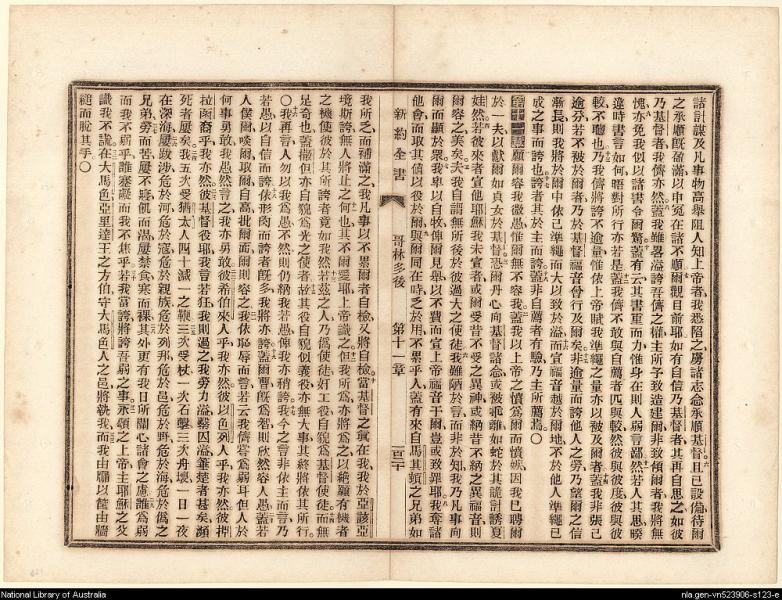 諸計謀及凡事物高舉阻人知上帝者我悉陷之虜諸志念承順基督且已設備待爾
之承順旣盈滿以申冤在諸不順爾觀目前耶如有自信乃基督者其再自思之如彼
乃基督者我儕亦然蓋我雖畧溢誇吾儕之權主所予致造建爾非致傾爾者我將無
愧亦免我似以諸書令爾驚蓋有云其書重而力惟身在則人弱言鄙然若人其思暌
違時書言如何晤對所行亦若是蓋我儕不敢與自薦者匹與較然彼與彼度彼與彼
較不聰也乃我儕將誇不逾量惟依上帝賦我準繩之量亦以被及爾者蓋我非張己
逾分若不被於爾者乃於基督福音曾行及爾矣非逾量而誇他人之勞乃望爾之信
漸長則我將於爾中依我準繩而大以致於溢而宣福音越於爾地不於他人準繩已
成之事而誇也誇者其於主而誇蓋非自薦者有驗乃主所薦焉〇
願爾容我微愚惟爾無不容我蓋我以上帝之憤爲爾而憤嫉因我已聘爾
於一夫以獻爾如貞女於基督恐爾丹心向基督諸念或被乖離如蛇於其詭計誘夏
娃然若彼來者宣他耶穌我未宣者或爾受昔不受之異神或納昔不納之異福音則
爾容之美矣夫我自謂無所後於彼過大之使徒我雖陋於言而非於知我乃凡事向
爾而顯於眾我卑以自牧俾爾見舉以不費而宣上帝福音于爾豈或致罪耶我奪諸
他會而取其値以役於爾與爾同在時乏於用不累乎人蓋有來自馬其頓之兄弟如
新約全書 哥林多後 第十一章 一百二十
我所乏而補滿之我凡事以不累爾者自檢又將自檢當基督之眞在我我於亞該亞
境斯誇無人將止之何也其不爾愛耶上帝識之但我所爲亦將爲之以絶願有機者
之機使彼於其所誇者竟如我然若茲之人乃僞使徒奸工役自貌爲基督使徒而無
足奇也蓋撒但亦自貌爲光之使者故其役自貌似義役亦無大事其終將依其所行
〇我再言人勿以我爲愚不然則仍納我若愚俾我亦稍誇我今之言非依主而言乃
若愚以自信而誇依形肉而誇者旣多我將亦誇蓋爾曹旣爲智則欣然容人愚蓋若
人僕爾噬爾取爾自高批爾面爾則容之我依恥辱而言若云我儕嘗爲弱耳但人於
何事勇敢我愚然言之我亦勇敢彼希伯來人乎我亦然彼以色列人乎我亦然彼亞伯
拉函裔乎我亦然彼基督役耶我言若狂我則過之我勞力溢鬃囚溢箠楚者甚矣瀕
死者屢矣我五次受猶太人四十減一之鞭三次受杖一次石擊三次舟壞一日一夜
在深海屢跋涉危於河危於寇危於親族危於列邦危於邑危於野危於海危於僞之
兄弟勞而苦屢不寢飢而渴屢禁食寒而裸其外更有我日所關心諸會之慮誰爲弱
而我不弱乎誰蹇礙而我不焦乎若我當誇將誇吾弱之事永頌之上帝主耶穌之父
識我不謊在大馬色亞里達王之方伯守大馬色人之邑將執我而我由牖以筐由牆
縋而脫其手〇
National Library of Australia
nla.gen-vn523906-s123-e